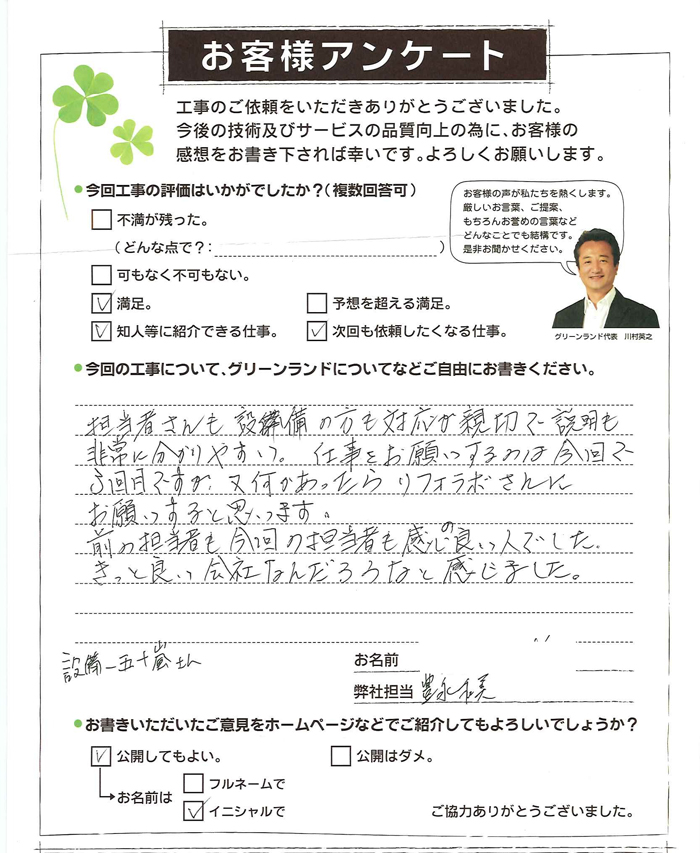 お客様アンケート
工事のご依頼をいただきありがとうございました。
今後の技術及びサービスの品質向上の為に、お客様の
感想をお書き下されば幸いです。よろしくお願いします。
●今回工事の評価はいかがでしたか?(複数回答可)
不満が残った。
(どんな点で?: )
可もなく不可もない。
満足。
予想を超える満足。
知人等に紹介できる仕事。
次回も依頼したくなる仕事。
お客様の声が私たちを熱くします。
厳しいお言葉、ご提案、
もちろんお誉めの言葉など
どんなことでも結構です。
是非お聞かせください。
グリーンランド代表 川村英之
●今回の工事について、グリーンランドについてなどご自由にお書きください。
担当者さんも設備の方も対応が親切で説明も
非常に分かりやすい。仕事をお願いするのは今回で
3回目ですが、又何かあったらリフォラボさんに
お願いすると思います。
前の担当者も今回の担当者も感じの良い人でした。
きっと良い会社なんだろうなと感じました。
設備-五十嵐さん
お名前
弊社担当 豊永
●お書きいただいたご意見をホームページなどでご紹介してもよろしいでしょうか?
公開してもよい。
公開はダメ。
お名前は
フルネームで
イニシャルで
ご協力ありがとうございました。